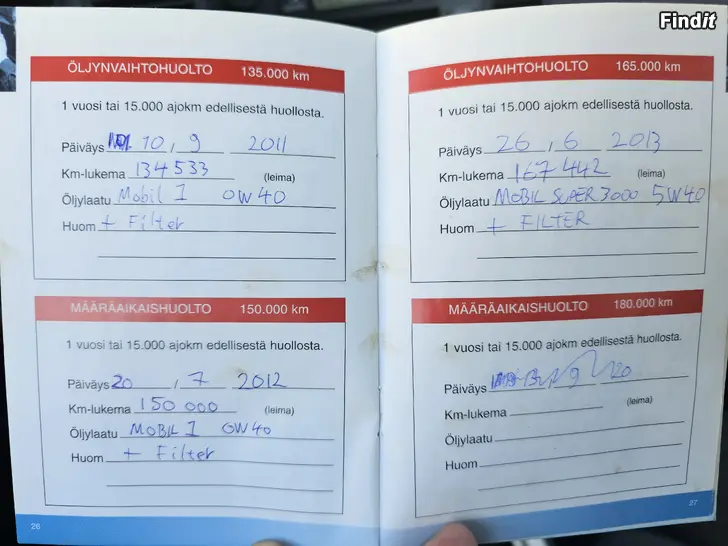 Findit
ÖLJYNVAIHTOHUOLTO 135.000 km
1 vuosi tai 15.000 ajokm edellisestä huollosta.
Päiväys 10, 9 2011
Km-lukema 134533 (leima)
Öljylaatu Mobil 1 0W40
Huom + Filter
MÄÄRÄAIKAISHUOLTO 150.000 km
1 vuosi tai 15.000 ajokm edellisestä huollosta.
Päiväys 20, 7 2012
Km-lukema 150 000 (leima)
Öljylaatu MOBIL 1 0W40
Huom + Filter
26
ÖLJYNVAIHTOHUOLTO 165.000 km
1 vuosi tai 15.000 ajokm edellisestä huollosta.
Päiväys 26, 6 2013
Km-lukema 167442 (leima)
Öljylaatu MOBIL SUPER 3000 5W40
Huom + FILTER
MÄÄRÄAIKAISHUOLTO 180.000 km
1 vuosi tai 15.000 ajokm edellisestä huollosta.
Päiväys 9 20
Km-lukema (leima)
Öljylaatu
Huom
27